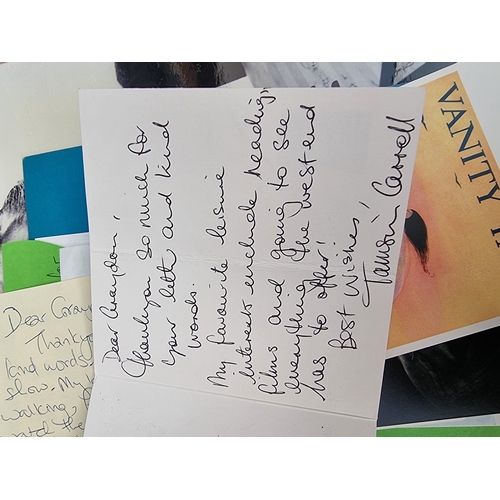 Dear Graydon,
Thankyou so much for
your lett and kind
words.
My favourite leisure
interests include reading,
films and going to see
everything the West end
has to offer!
Best Wishes,
Tamsin Carroll
VANITY
Dear Grayd
Thankyo
kind words
slow. My
walking,
and the